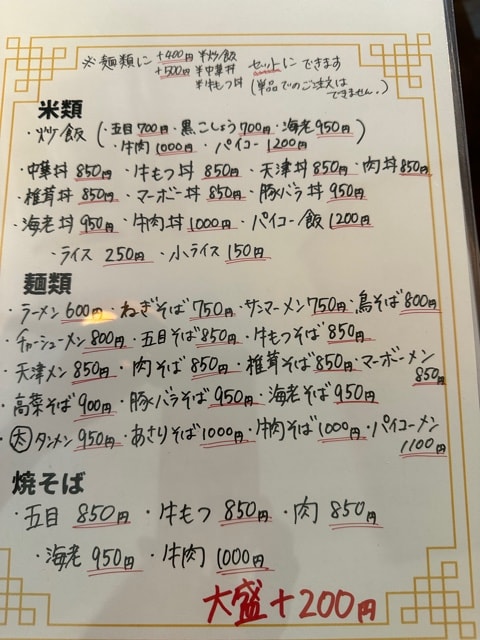 ※麺類に +400円 半炒飯 セットにできます
+500円 半中華丼 (単品でのご注文は
半牛もつ丼 できません。)
米類
・炒飯(・五目700円・黒こしょう700円・海老950円
・牛肉1000円・パイコー1200円)
・中華丼850円・牛もつ丼850円・天津丼850円・肉丼850円
・椎茸丼850円・マーボー丼850円・豚バラ丼950円
・海老丼950円・牛肉丼1000円・パイコー飯1200円
・ライス250円・小ライス150円
麺類
・ラーメン600円・ねぎそば750円・サンマーメン750円・鳥そば800円
・チャーシューメン800円・五目そば850円・牛もつそば850円
・天津メン850円・肉そば850円・椎茸そば850円・マーボーメン
850円
・高菜そば900円・豚バラそば950円・海老そば950円
・大タンメン950円・あさりそば1000円・牛肉そば1000円・パイコーメン
1100円
焼そば
・五目850円・牛もつ850円・肉850円
・海老950円・牛肉1000円
大盛+200円